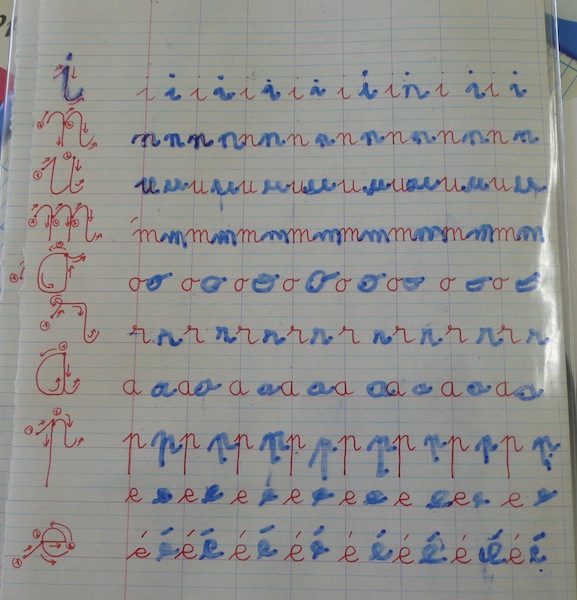 i i i i i i i i i i i i n i i i i
n n n n n n n n n n n n n n n n n
u u u u u u u u u u u u u u u u u
m m m m m m m m m m m m m m m m m
o o o o o o o o o o o o o o o o o
r r r r r r r r r r r r r r r r r
a a a a a a a a a a a a a a a a a
p p p p p p p p p p p p p p p p p
e e e e e e e e e e e e e e e e
e é é é é é é é é é é é é é é é é